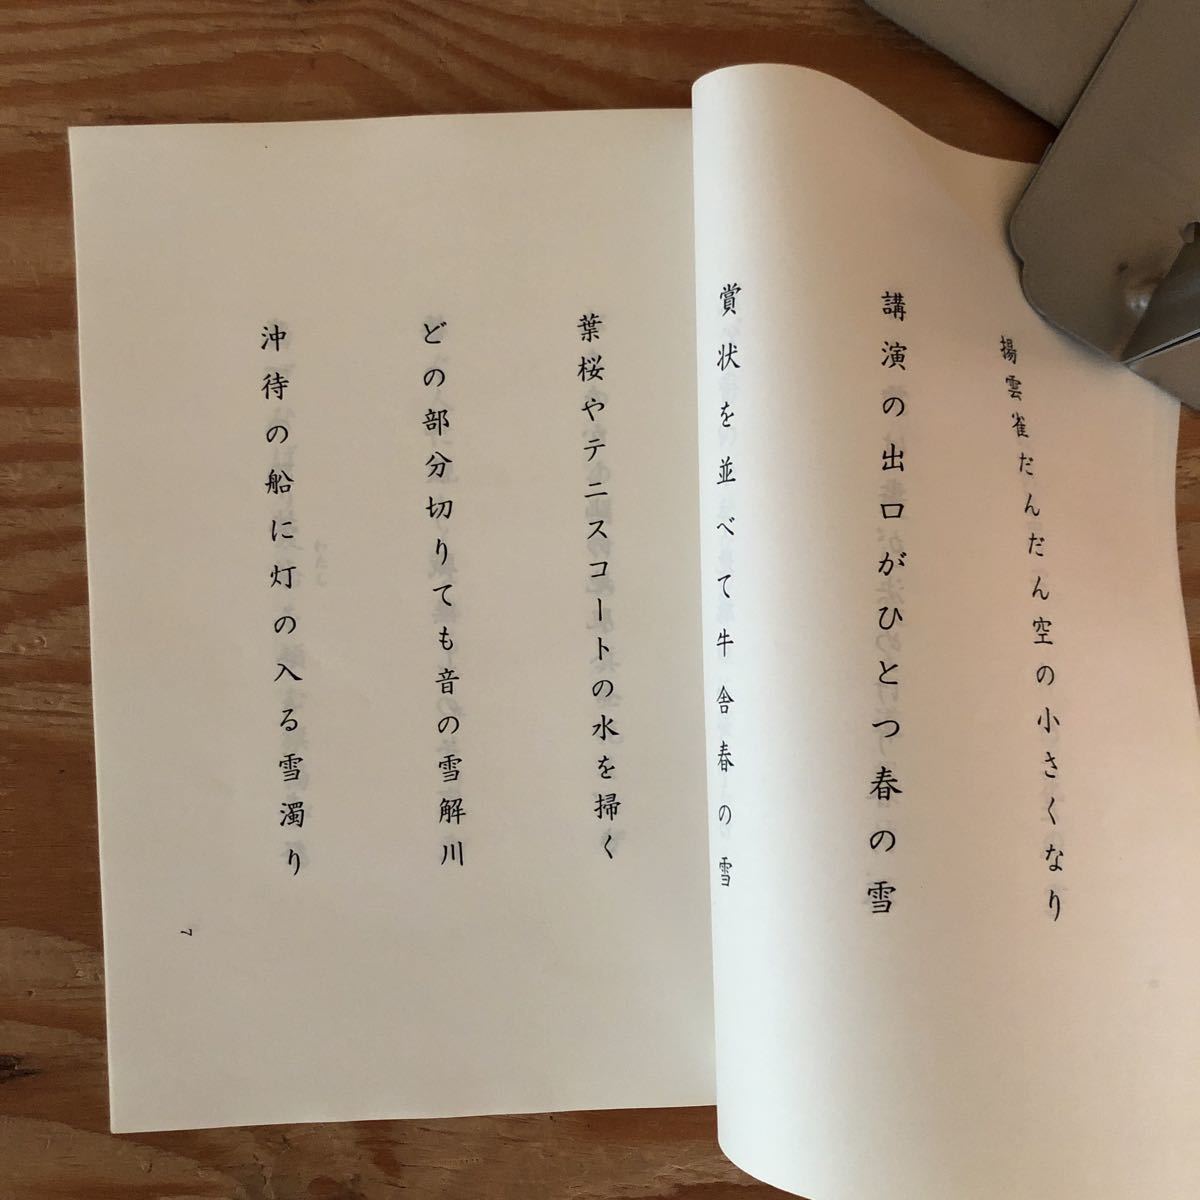 揚雲雀だんだん空の小さくなり
講演の出口がひとつ春の雪
賞状を並べて牛舎春の雪
葉桜やテニスコートの水を掃く
どの部分切りても音の雪解川
沖待の船に灯の入る雪濁り
7